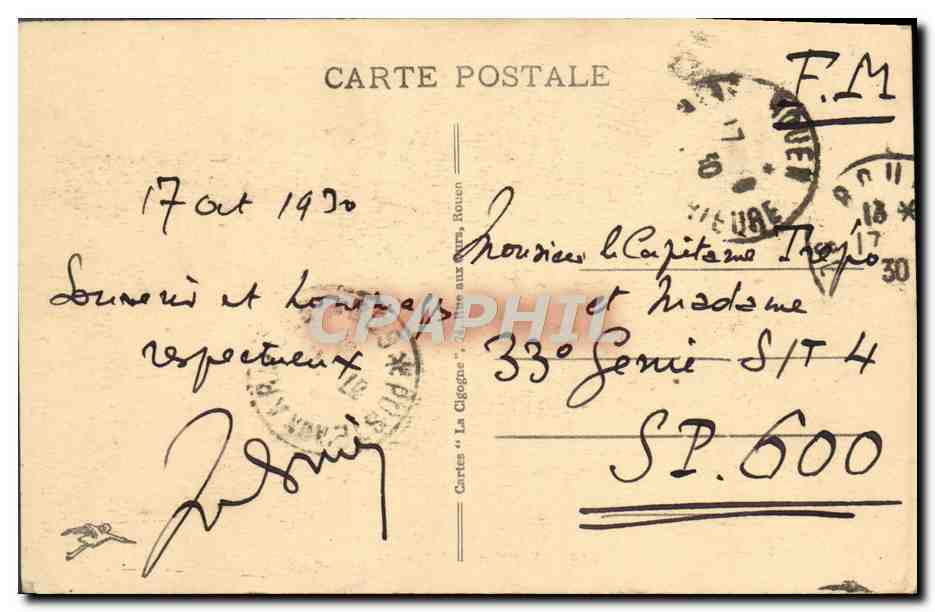 CARTE POSTALE
F.M
ROUEN
17
30
13
17
30
17 oct 1930
Souvenir et hommages
respectueux
Monsieur le Capitaine Trépo
et Madame
33e Génie S/T 4
SP. 600
Cartes " La Cigogne ", aux ours, Rouen
CPAPHIL